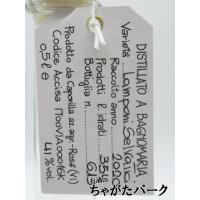 DISTILLATO A BAGNOMARIA
Varietà Lamponi Selvatici
Raccolto anno 2020
Prodotti l. idrati 354
Bottiglia n.
Prodotto da Capovilla az. agr. - Rosà (VI)
Codice Accisa IT00VIA00016K
0,5 l e 41% vol.
お酒の
ちゃがたパーク